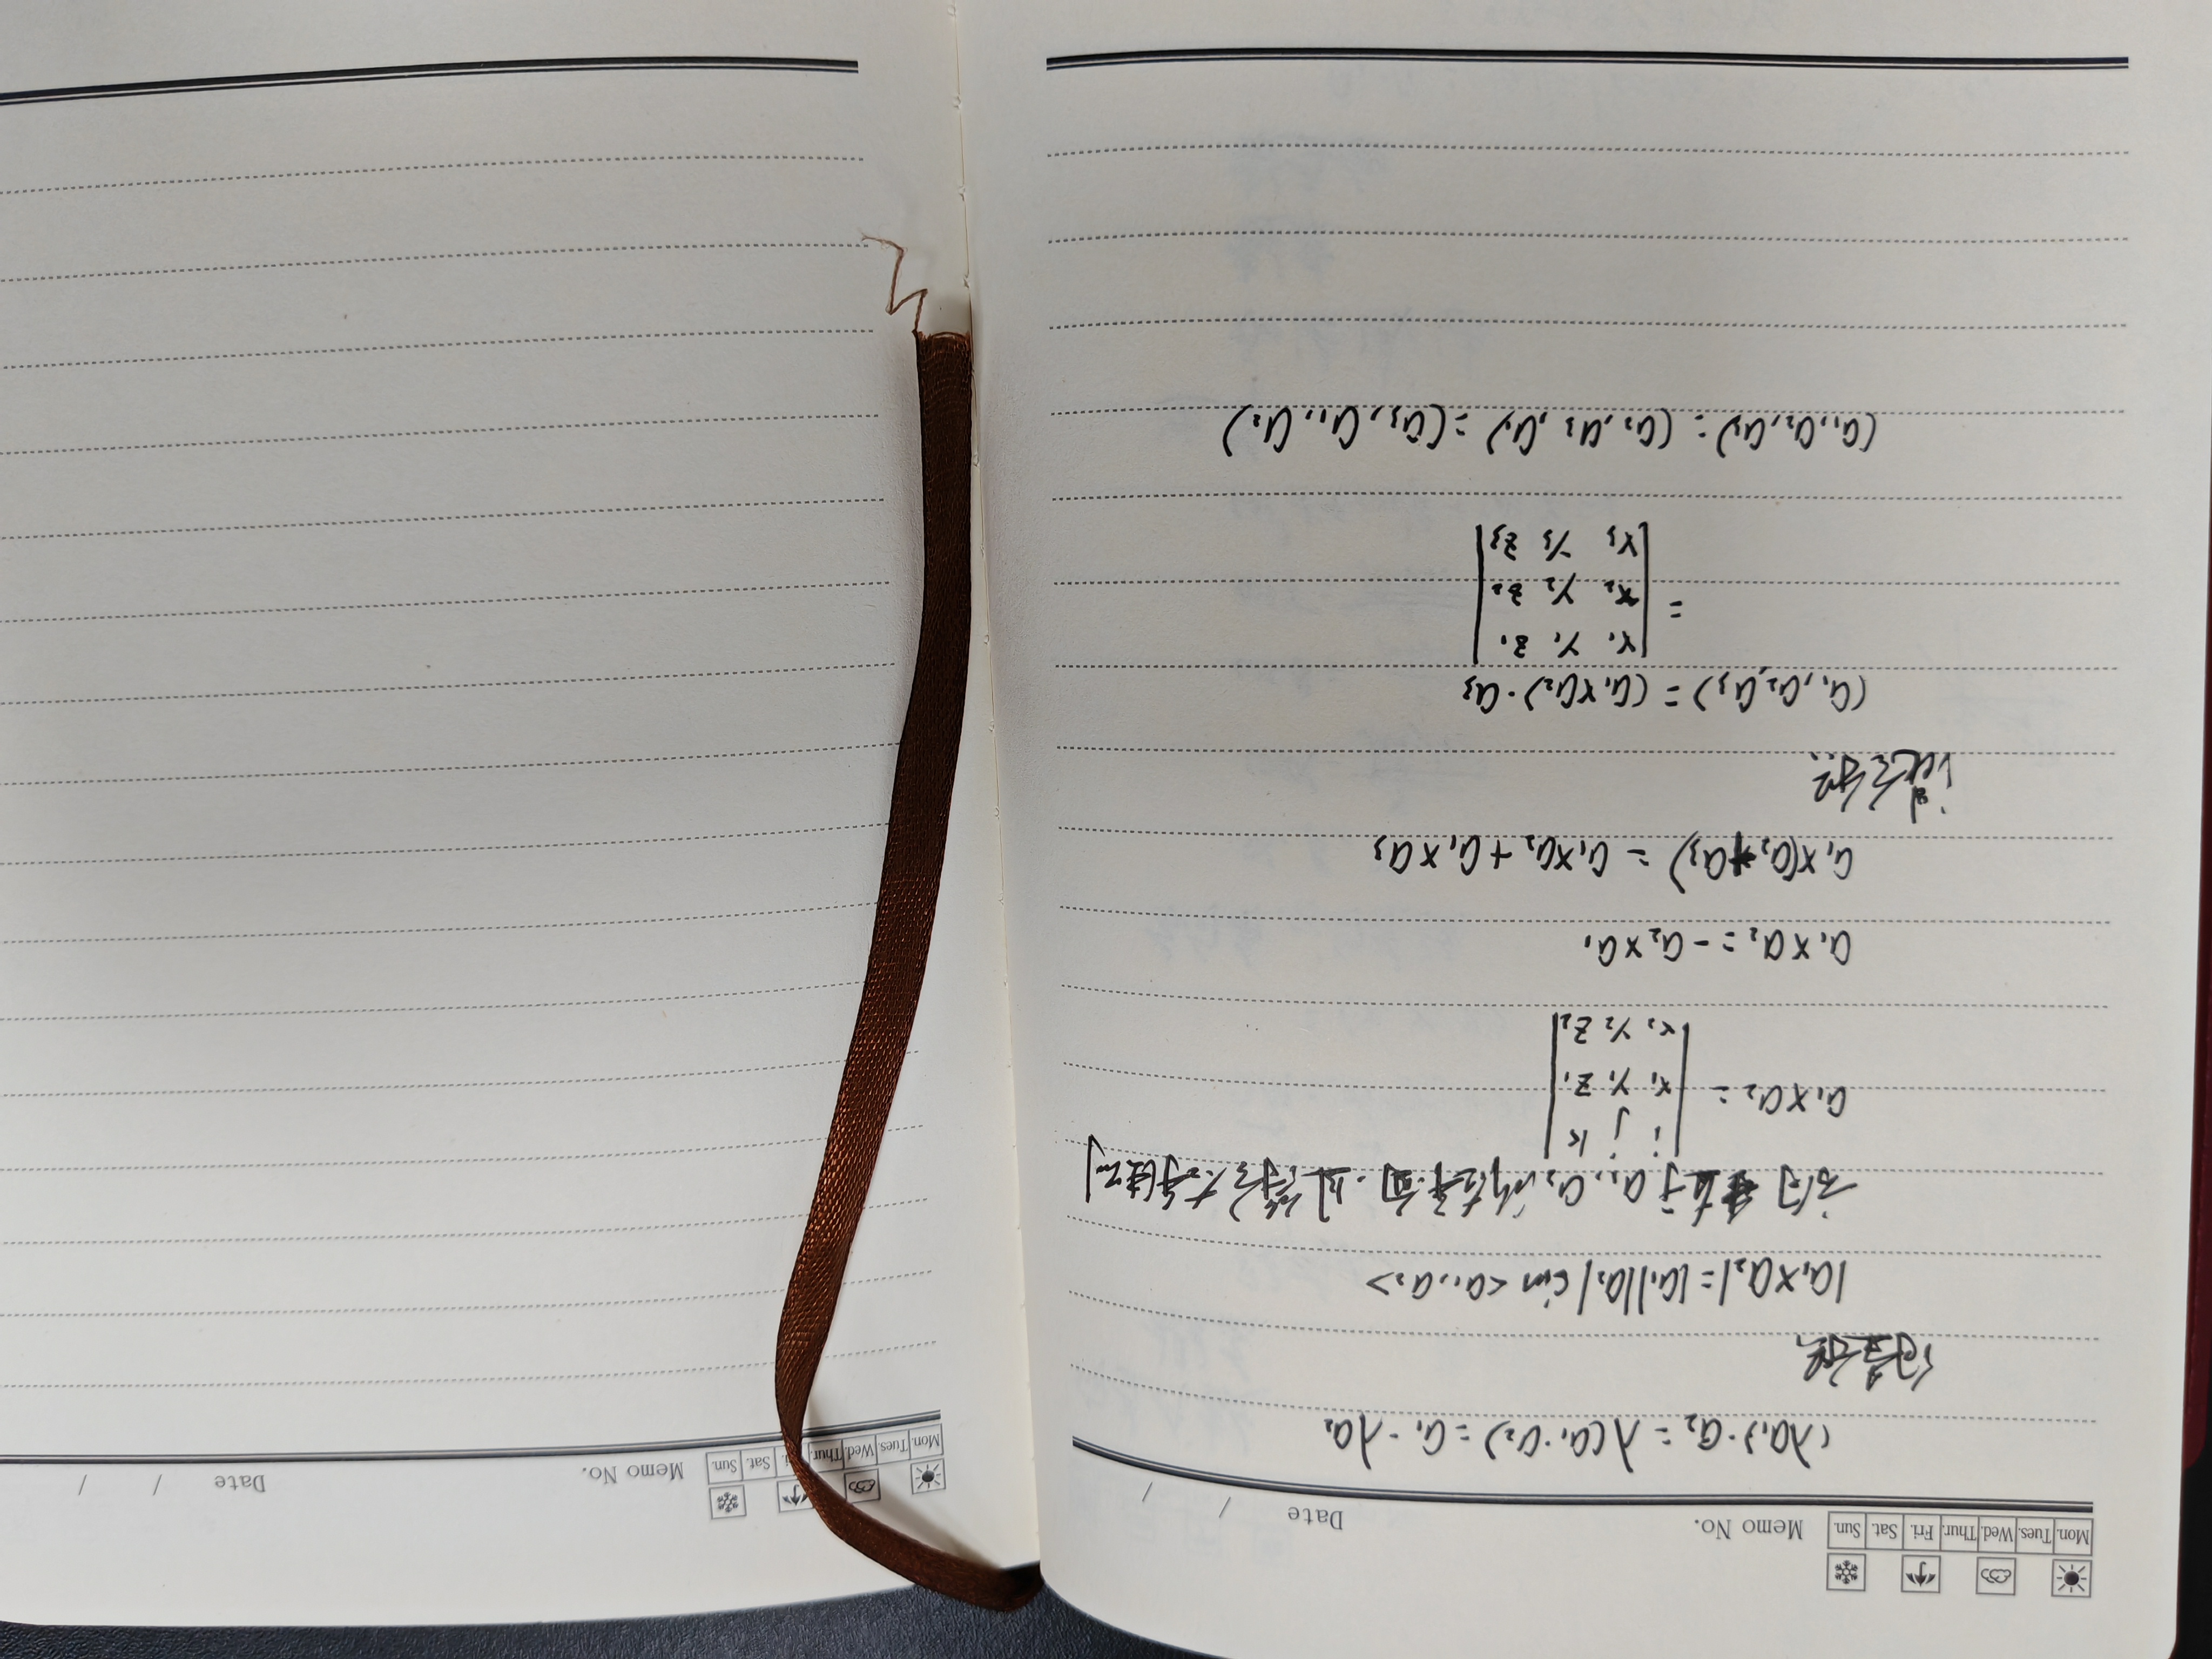 Mon. Tues. Wed. Thur. Fri. Sat. Sun.
Memo No.
Date / /
(λa₁)·a₂ = λ(a₁·a₂) = a₁·λa₂
向量积
|a₁×a₂| = |a₁||a₂| sin <a₁,a₂>
方向垂直于a₁,a₂所在平面.且符合右手法则
a₁×a₂ = | i j k |
| x₁ y₁ z₁ |
| x₂ y₂ z₂ |
a₁×a₂ = -a₂×a₁
a₁×(a₂+a₃) = a₁×a₂+a₁×a₃
混合积
(a₁,a₂,a₃) = (a₁×a₂)·a₃
= | x₁ y₁ z₁ |
| x₂ y₂ z₂ |
| x₃ y₃ z₃ |
(a₁,a₂,a₃) = (a₂,a₃,a₁) = (a₃,a₁,a₂)
Mon. Tues. Wed. Thur. i. Sat. Sun.
Memo No.
Date / /